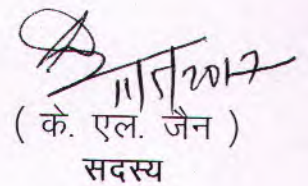 11/7/2017
( के. एल. जैन )
सदस्य